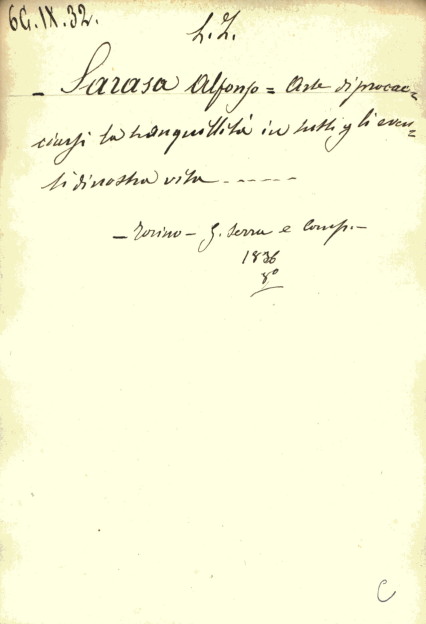 6G.IX.32.
L.Z.
- Sarasa Alfonso = Arte di procac=
ciarsi la tranquillità in tutti gli even=
ti di nostra vita - - - - - -
- Torino - G. Serra e Comp. -
1836
8º
C